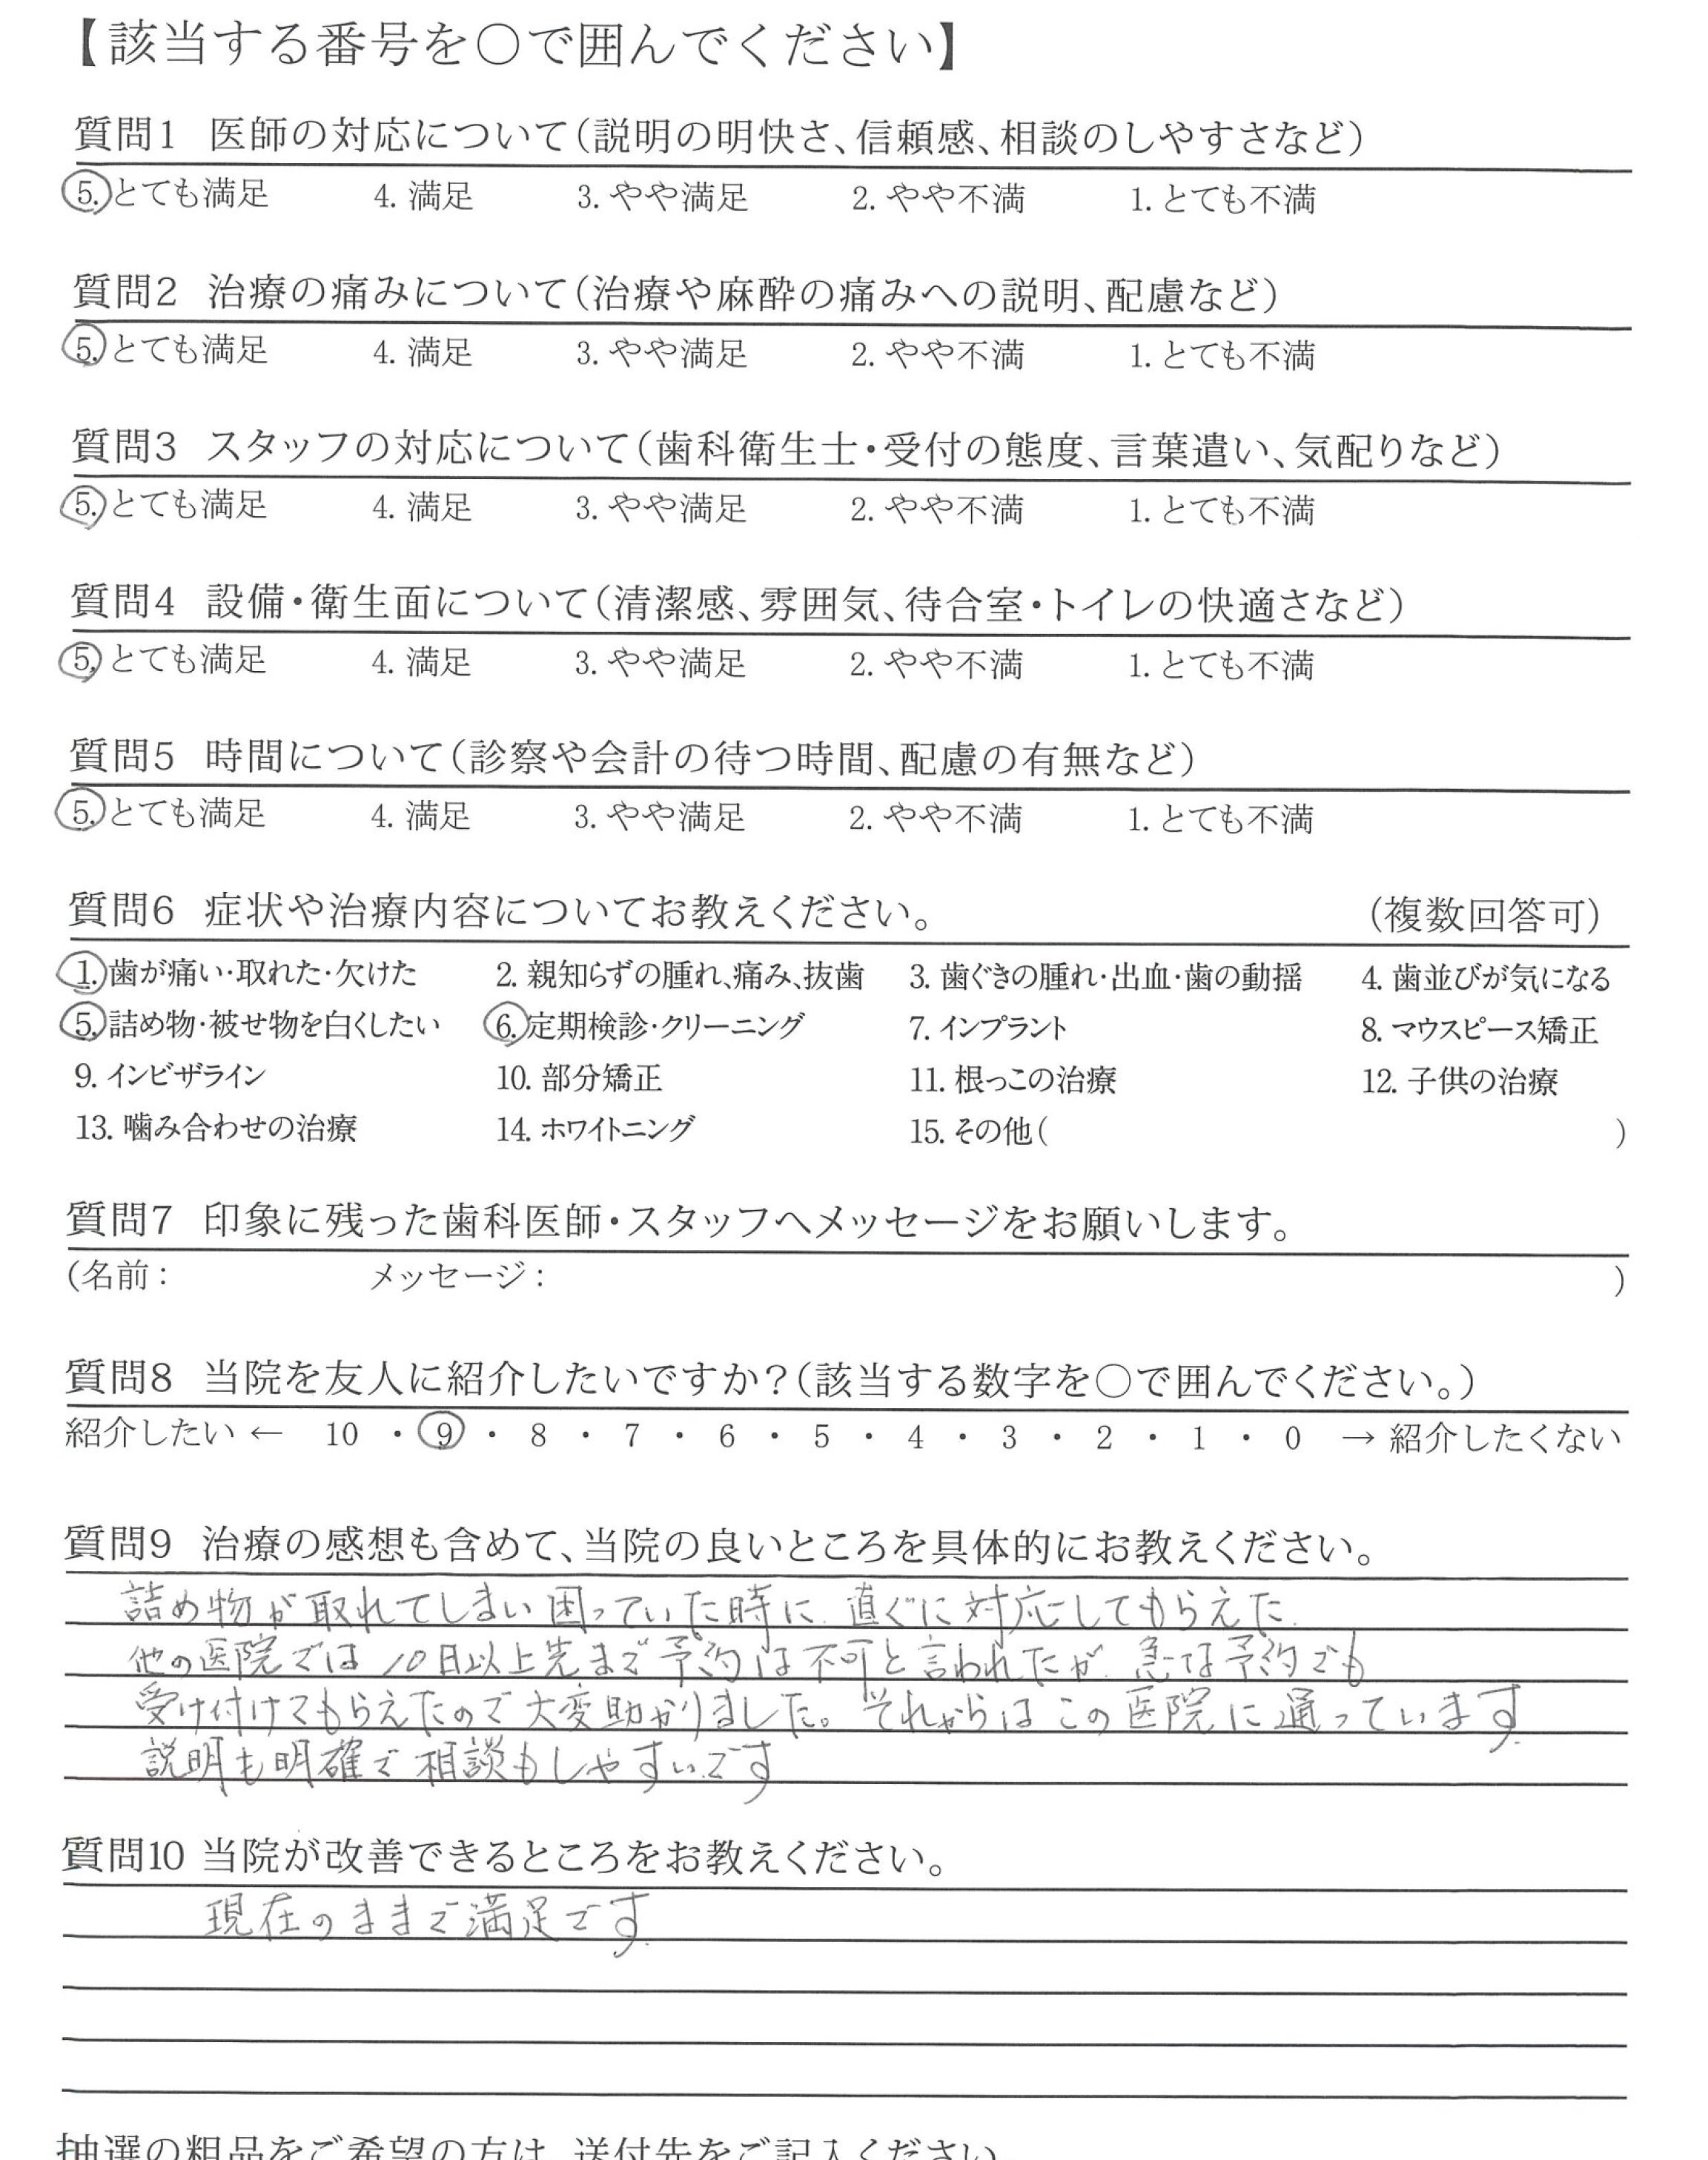 【該当する番号を○で囲んでください】
質問1 医師の対応について(説明の明快さ、信頼感、相談のしやすさなど)
5. とても満足 4. 満足 3. やや満足 2. やや不満 1. とても不満
質問2 治療の痛みについて(治療や麻酔の痛みへの説明、配慮など)
5. とても満足 4. 満足 3. やや満足 2. やや不満 1. とても不満
質問3 スタッフの対応について(歯科衛生士・受付の態度、言葉遣い、気配りなど)
5. とても満足 4. 満足 3. やや満足 2. やや不満 1. とても不満
質問4 設備・衛生面について(清潔感、雰囲気、待合室・トイレの快適さなど)
5. とても満足 4. 満足 3. やや満足 2. やや不満 1. とても不満
質問5 時間について(診察や会計の待つ時間、配慮の有無など)
5. とても満足 4. 満足 3. やや満足 2. やや不満 1. とても不満
質問6 症状や治療内容についてお教えください。 (複数回答可)
1. 歯が痛い・取れた・欠けた 2. 親知らずの腫れ、痛み、抜歯 3. 歯ぐきの腫れ・出血・歯の動揺 4. 歯並びが気になる
5. 詰め物・被せ物を白くしたい 6. 定期検診・クリーニング 7. インプラント 8. マウスピース矯正
9. インビザライン 10. 部分矯正 11. 根っこの治療 12. 子供の治療
13. 噛み合わせの治療 14. ホワイトニング 15. その他( )
質問7 印象に残った歯科医師・スタッフへメッセージをお願いします。
(名前: メッセージ: )
質問8 当院を友人に紹介したいですか?(該当する数字を○で囲んでください。)
紹介したい ← 10 ・ 9 ・ 8 ・ 7 ・ 6 ・ 5 ・ 4 ・ 3 ・ 2 ・ 1 ・ 0 → 紹介したくない
質問9 治療の感想も含めて、当院の良いところを具体的にお教えください。
詰め物が取れてしまい困っていた時に、直ぐに対応してもらえた.
他の医院では10日以上先まで予約は不可と言われたが、急な予約でも
受け付けてもらえたので大変助かりました。それからはこの医院に通っています.
説明も明確で相談もしやすいです
質問10 当院が改善できるところをお教えください。
現在のままで満足です.
抽選の粗品をご希望の方は、送付先をご記入ください。